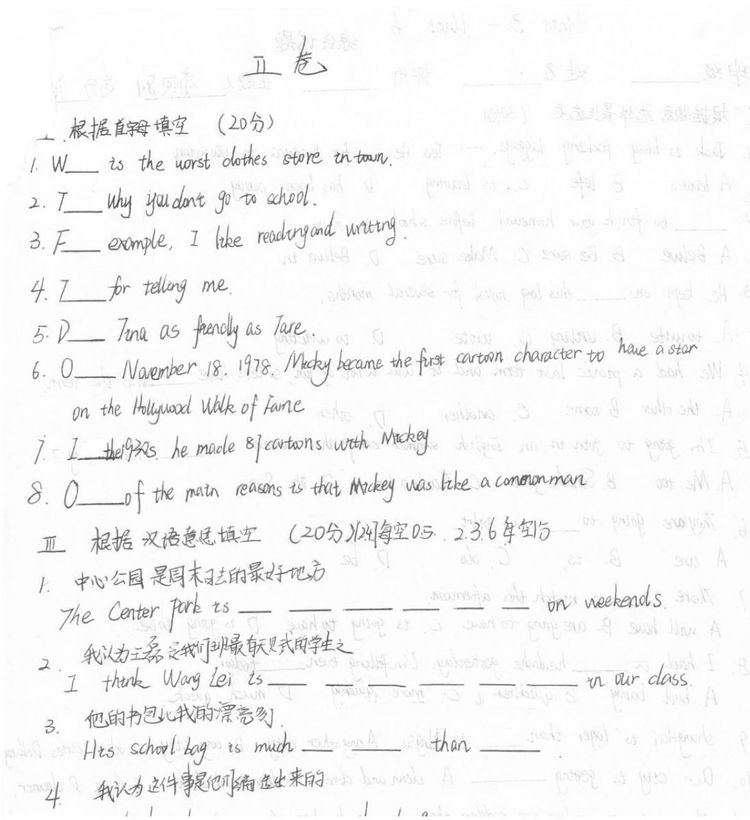 II 卷
二、根据首字母填空 (20分)
1. W___ is the worst clothes store in town.
2. T___ why you don't go to school.
3. F___ example, I like reading and writing.
4. T___ for telling me.
5. D___ Tina as friendly as Tare.
6. O___ November 18, 1978, Micky became the first cartoon character to have a star
on the Hollywood Walk of Fame
7. I___ the 1930s, he made 87 cartoons with Mickey
8. O___ of the main reasons is that Mickey was like a common man
III 根据汉语意思填空 (20分)
1. 中心公园是周末去的最好地方
The Center Park is ___ ___ ___ ___ ___ ___ on weekends.
2. 我认为王磊是我们班最有天赋的学生之
I think Wang Lei is ___ ___ ___ ___ ___ ___ in our class.
3. 他的书包比我的漂亮多
His school bag is much ___ ___ than ___.
4. 我认为这件事是他们编造出来的